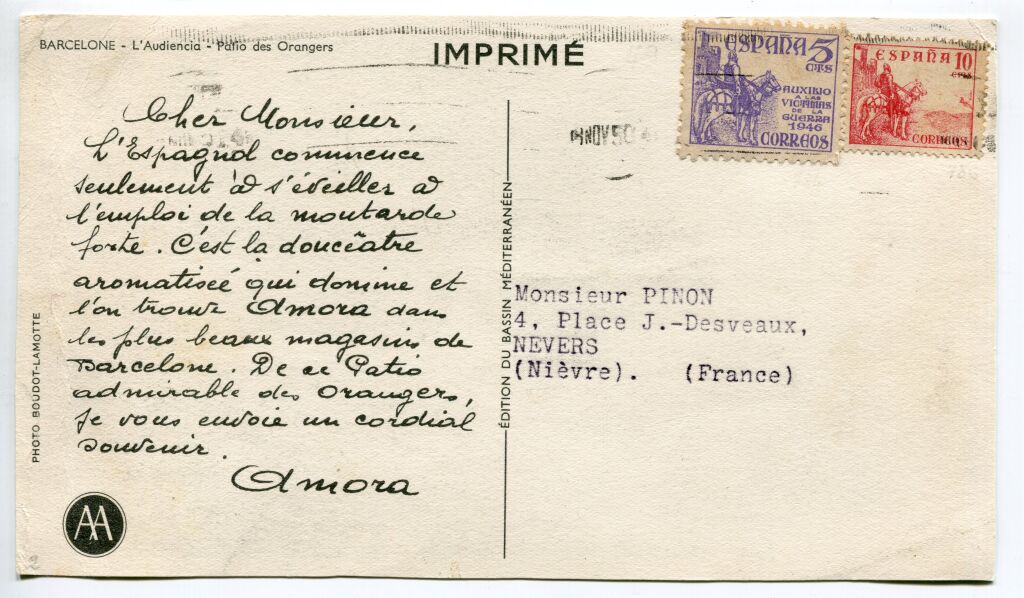 BARCELONE - L'Audiencia - Patio des Orangers
IMPRIMÉ
ESPAÑA 5
CTS
AUXILIO
A LAS
VICTIMAS
DE LA
GUERRA
1946
CORREOS
ESPAÑA 10
CTS
CORREOS
NOV 50
Cher Monsieur,
L'Espagnol commence
seulement à s'éveiller à
l'emploi de la moutarde
forte. C'est la douceâtre
aromatisée qui domine et
l'on trouve Amora dans
les plus beaux magasins de
Barcelone. De ce Patio
admirable des Orangers,
je vous envoie un cordial
souvenir.
Amora
AA
PHOTO BOUDOT-LAMOTTE
ÉDITION DU BASSIN MÉDITERRANÉEN
Monsieur PINON
4, Place J.-Desveaux,
NEVERS
(Nièvre). (France)